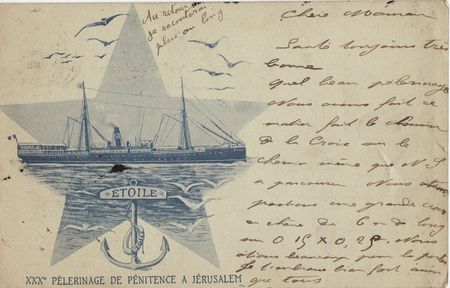 Au retour
je raconterai
plus au long
ÉTOILE
XXXᵉ PÈLERINAGE DE PÉNITENCE A JÉRUSALEM
Chère Maman
Santé toujours très
bonne
Quel beau pèlerinage
Nous avons fait ce
matin fait le chemin
de la Croix sur le
chemin même que N S
a parcouru Nous
portions une grande croix
en chêne de 6 m de long
su 0 15 X 0,25. Nous
étions beaucoup pour la porter
Je t'embrasse bien fort ainsi
que tous